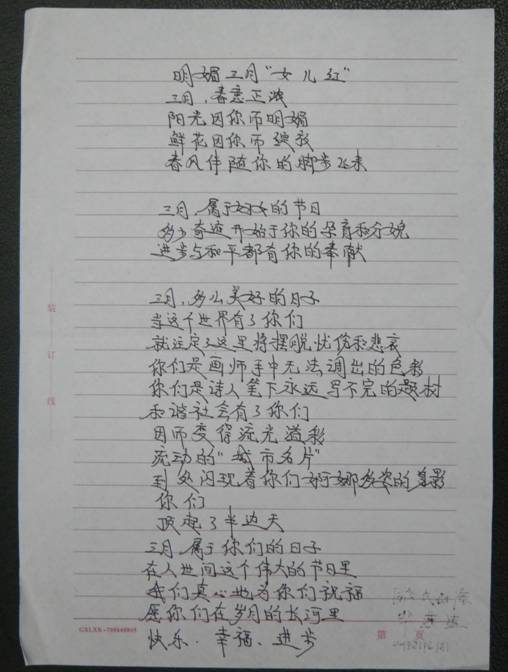 明媚三月"女儿红"
三月，春意正浓
阳光因你而明媚
鲜花因你而
春风伴随你的脚步飞来
三月，属于妇女的节日
多少奇迹开始于你的孕育和分娩
进步与和平都有你的奉献
三月，多么美好的日子
当这个世界有了你们
就注定了这里将摆脱忧伤和悲哀
你们是画师手中无法调出的色彩
你们是诗人笔下永远写不完的题材
和谐社会有了你们
因而变得流光溢彩
流动的"城市名片"
到处闪现着你们婀娜多姿的身影
你们
顶起了半边天
三月，属于你们的日子
在人世间这个伟大的节日里
我们真心地为你们祝福
愿你们在岁月的长河里
快乐．幸福．进步
装
订
线
第 页